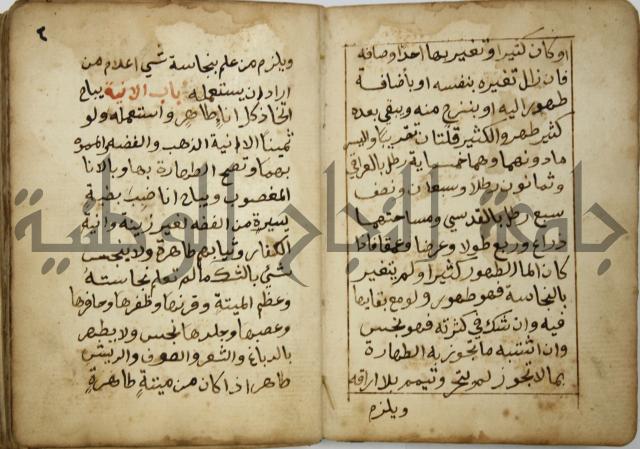 او كان كثيرا وتغير بها احد اوصافه
فان زال تغيره بنفسه او باضافة
طهور اليه او بنزح منه ويبقى بعده
كثير طهر والكثير قلتان تقريبا واليسير
مادونهما وهما خمسماية رطل بالعراقي
وثمانون رطلا وسبعان ونصف
سبع رطل بالقدسي ومساحتهما
ذراع وربع طولا وعرضا وعمقا فاذا
كان الماا لطهور كثيرا ولم يتغير
بالنجاسة فهو طهور ولو مع بقايها
فيه وان شك في كثرته فهو نجس
وان اشتبه ما تجوز به الطهارة
بما لا تجوز لم يتحر وتيمم بلا اراقه
ويلزم
٢
ويلزم من علم بنجاسة شي اعلام من
اراد ان يستعمله باب الانية يباح
اتخاذ كل اناء طاهر واستعماله ولو
ثمينا الا انية الذهب والفضه والمموه
بهما وتصح الطهارة بها وبالانا
المغصوب ويباح انا ضبب بضبة
يسيرة من الفضه لغير زينه وانية
الكفار وثيابهم طاهرة ولا ينجس
شي بالشك ما لم تعلم نجاسته
وعظم الميتة وقرنها وظفرها وحافرها
وعصبها وجلدها نجس ولا يطهر
بالدباغ والشعر والصوف والريش
طاهر اذا كان من ميتةٍ طاهرةٍ
جامعة النجاح الوطنية